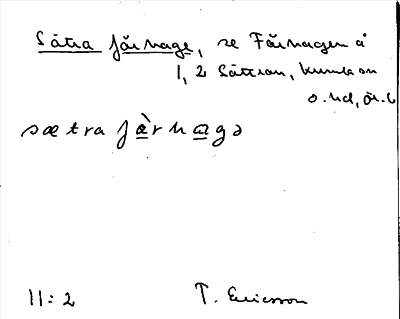 Sätra färnage, se Färnagen å
1, 2 Sättran, Kumla sn
o. hd, Ör. l
sætra fàrnagə
11:2 T. Ericsson